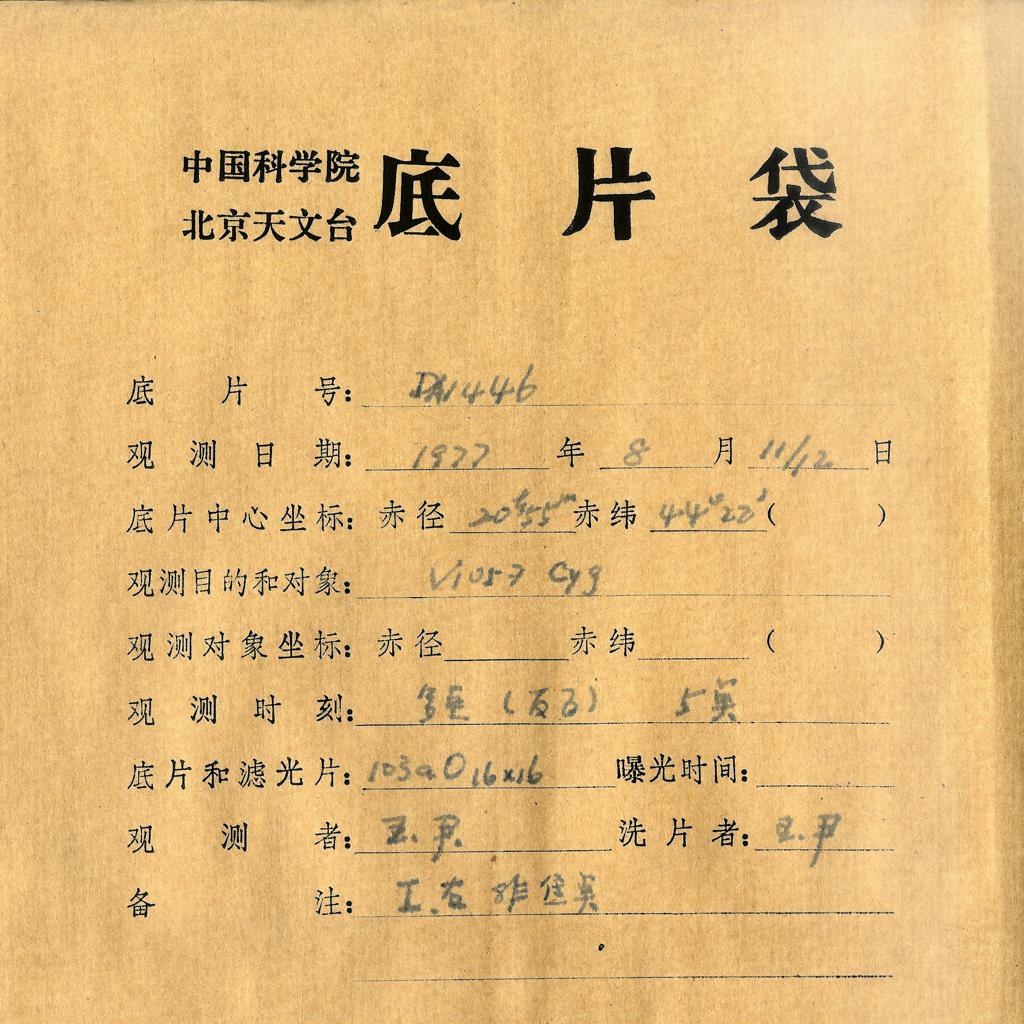 中国科学院
北京天文台 底片袋
底片号： 1446
观测日期： 1977 年 8 月 11/12 日
底片中心坐标：赤径 20h55m 赤纬 44°22′ （ ）
观测目的和对象： V1057 Cyg
观测对象坐标：赤径 赤纬 （ ）
观测时刻： 5
底片和滤光片： 103aO 16×16 曝光时间：
观测者： 王.尹. 洗片者： 王.尹
备注：